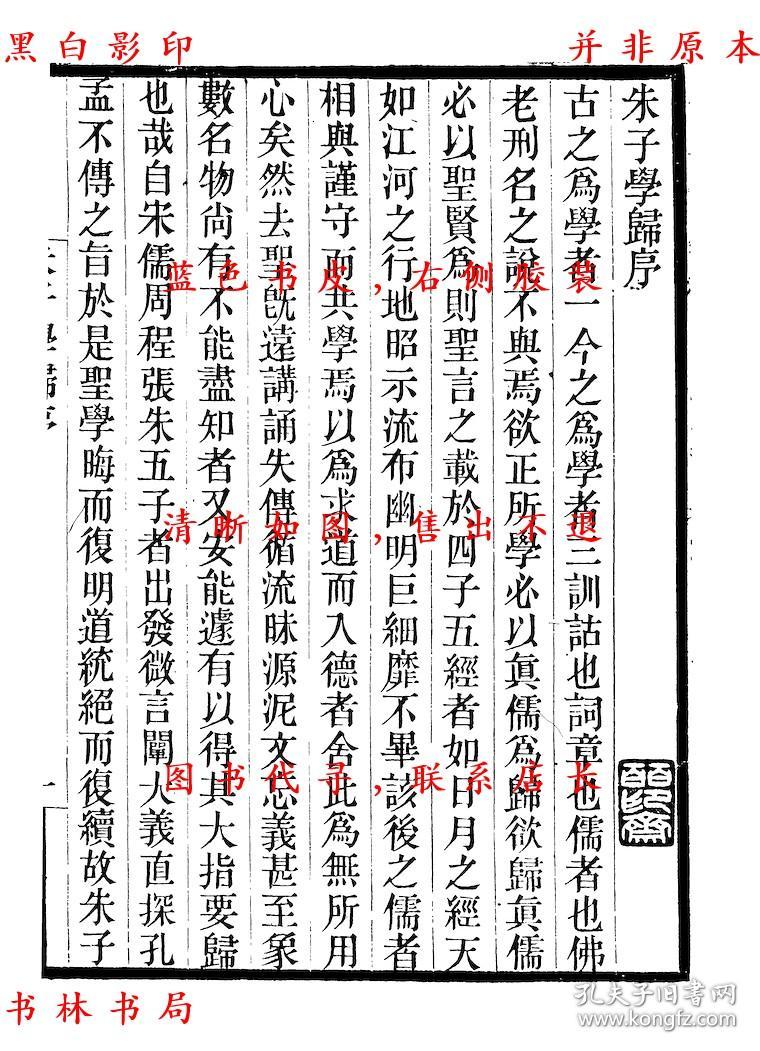 黑白影印
并非原本
朱子學歸序
古之為學者一今之為學者三訓詁也詞章也儒者也佛
老刑名之說不與焉欲正所學必以眞儒為歸欲歸眞儒
必以聖賢為則聖言之載於四子五經者如日月之經天
如江河之行地昭示流布幽明巨細靡不畢該後之儒者
相與謹守而共學焉以為求道而入德者舍此為無所用
心矣然去聖旣遠講誦失傳循流昧源泥文忘義甚至象
數名物尙有不能盡知者又安能遽有以得其大指要歸
也哉自宋儒周程張朱五子者出發微言闡大義直探孔
孟不傳之旨於是聖學晦而復明道統絕而復續故朱子
一
蓝色书皮,右侧胶装
清晰如图,售出不退
图书代寻,联系店长
书林书局
孔夫子旧书网
www.kongfz.com